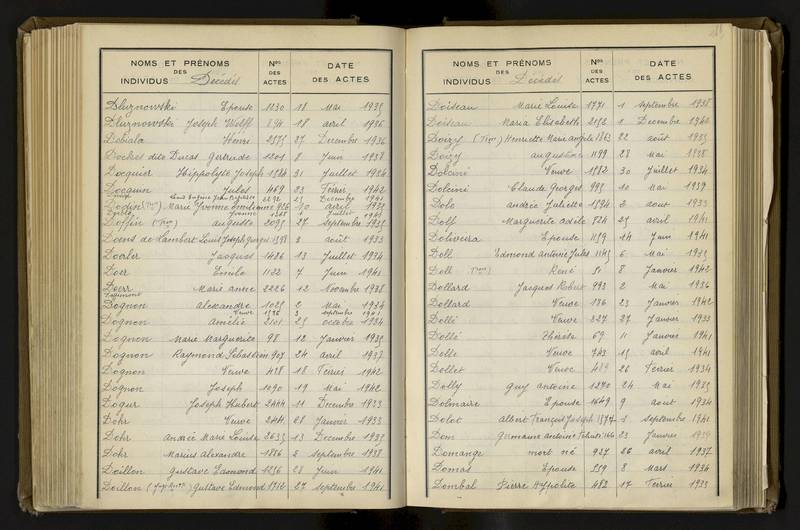 NOMS ET PRÉNOMS DES INDIVIDUS Décédés Nos DES ACTES DATE DES ACTES
Dluznowski Epouse 1230 18 Mai 1935
Dluznowski Joseph Wolff 894 18 avril 1936
Dobiala Henri 2575 27 Decembre 1936
Dockes dite Ducas Gertrude 1201 8 Juin 1938
Docquier Hippolyte Joseph 1584 31 Juillet 1934
Docquin Jules 469 03 Février 1942
Dodin Marie Yvonne Emilienne 926 30 avril 1938
Doffin auguste 2095 27 septembre 1935
Doens de Lambert Louis Joseph Georges 1598 3 août 1933
Doerler Jacques 1426 13 Juillet 1934
Doer Emile 1122 7 Juin 1941
Doerr Marie anne 2226 12 Novembre 1938
Dognon Alexandre 1025 2 Mai 1934
Veuve 1796 3 septembre 1941
Dognon Amélie 2101 25 octobre 1934
Dognon Marie Marguerite 98 12 Janvier 1935
Dognon Raymond Sébastien 907 24 avril 1937
Dognon Veuve 428 18 Février 1942
Dognon Joseph 1090 19 Mai 1942
Dogur Joseph Hubert 2444 11 Decembre 1933
Dohr Veuve 244 28 Janvier 1933
Dohr Andrée Marie Louise 2635 13 Decembre 1935
Dohr Marius Alexandre 1826 2 septembre 1938
Doillon Gustave Edmond 1256 28 Juin 1941
Doillon Gustave Edmond 1912 27 septembre 1941
NOMS ET PRÉNOMS DES INDIVIDUS Décédés Nos DES ACTES DATE DES ACTES
Doiseau Marie Louise 1771 1 septembre 1938
Doiseau Maria Elisabeth 2152 1 Decembre 1940
Doizy Henriette Marie Angèle 1863 22 août 1935
Doizy augustine 1199 28 Mai 1935
Dolcini Veuve 1582 30 Juillet 1934
Dolcini Claude Georges 995 10 Mai 1939
Dole andrée Juliette 1594 2 aout 1933
Dolf Marguerite Adèle 824 25 avril 1941
Doliviera Epouse 1159 14 Juin 1941
Doll Edmond Antoine Jules 1145 6 Mai 1935
Doll René 51 8 Janvier 1942
Dollard Jacques Robert 993 2 Mai 1936
Dollard Veuve 186 23 Janvier 1942
Dollé Veuve 227 27 Janvier 1933
Dollé Thérèse 69 11 Janvier 1941
Dolle Veuve 743 15 avril 1941
Dollet Veuve 419 26 Février 1934
Dolly guy antoine 1270 24 Mai 1935
Dolmaire Epouse 1649 9 aout 1934
Dolot Albert François Joseph 1 septembre 1941
Dom Germaine Antoine 23 Janvier 1939
Domange mort né 927 26 avril 1937
Domas Epouse 559 8 Mars 1934
Dombal Pierre Hippolite 482 17 Février 1933